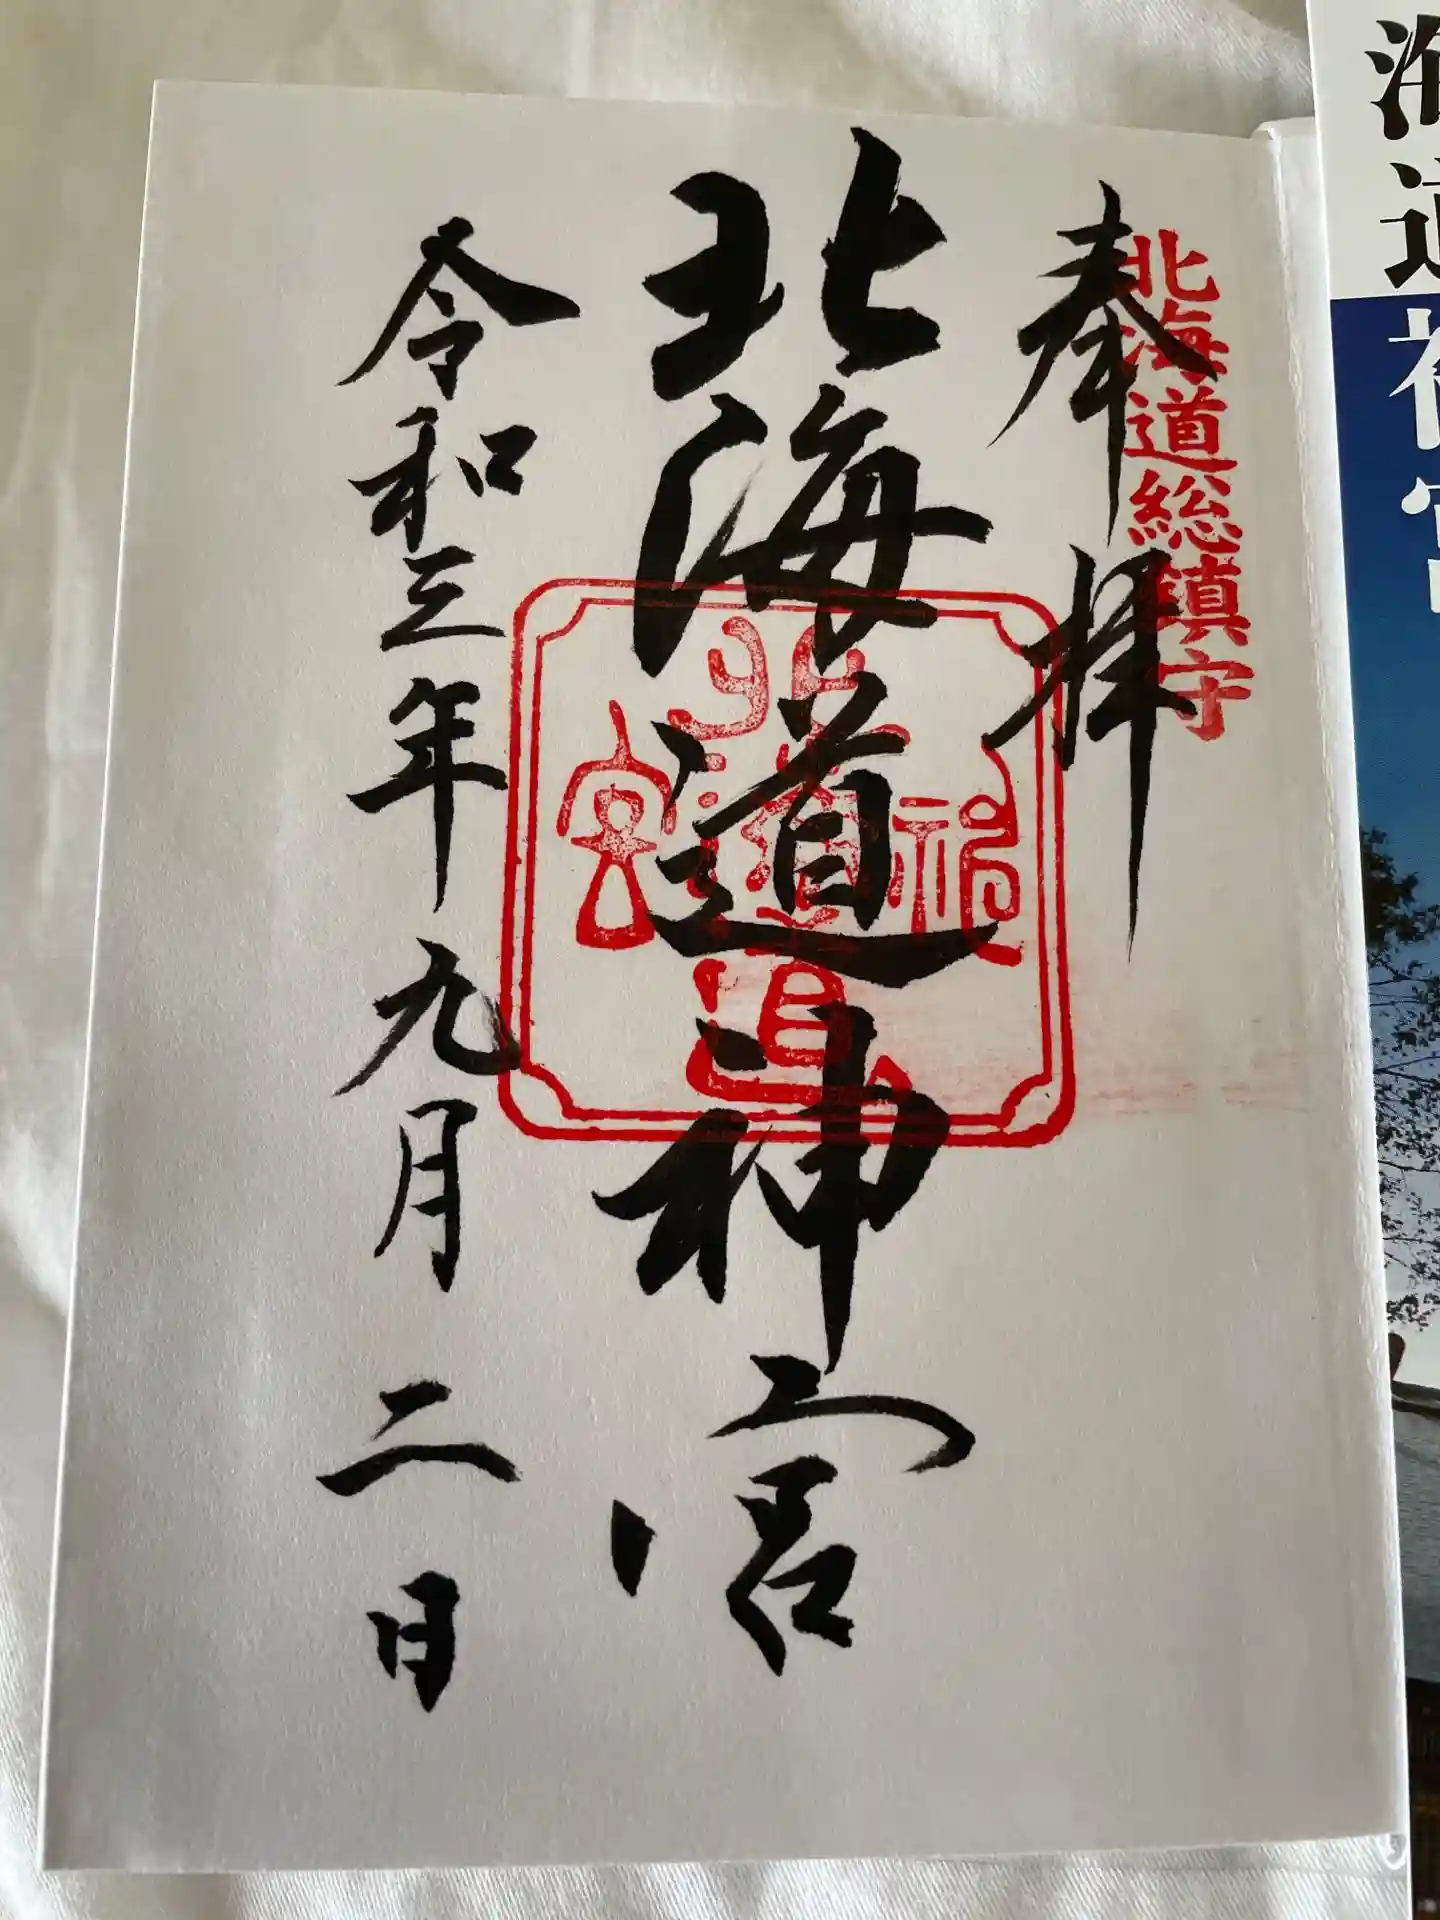 奉拝
北海道総鎮守
北海道神宮
北海道神宮
令和三年九月二日
海道神宮